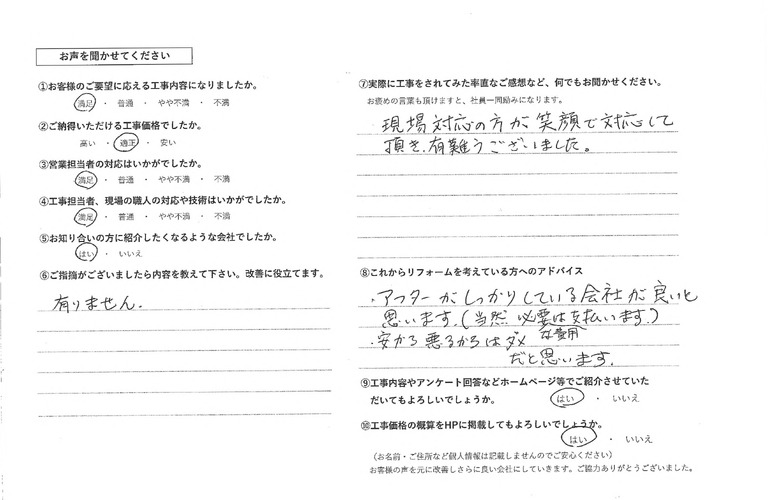 お声を聞かせてください
①お客様のご要望に応える工事内容になりましたか。
満足 ・ 普通 ・ やや不満 ・ 不満
②ご納得いただける工事価格でしたか。
高い ・ 適正 ・ 安い
③営業担当者の対応はいかがでしたか。
満足 ・ 普通 ・ やや不満 ・ 不満
④工事担当者、現場の職人の対応や技術はいかがでしたか。
満足 ・ 普通 ・ やや不満 ・ 不満
⑤お知り合いの方に紹介したくなるような会社でしたか。
はい ・ いいえ
⑥ご指摘がございましたら内容を教えて下さい。改善に役立てます。
有りません.
⑦実際に工事をされてみた率直なご感想など、何でもお聞かせください。
お褒めの言葉も頂けますと、社員一同励みになります。
現場対応の方が笑顔で対応して
頂き、有難うございました。
⑧これからリフォームを考えている方へのアドバイス
・アフターがしっかりしている会社が良いと
思います.(当然 必要な費用は支払います.)
・安かろ悪るかろはダメ
だと思います.
⑨工事内容やアンケート回答などホームページ等でご紹介させていた
だいてもよろしいでしょうか。 はい ・ いいえ
⑩工事価格の概算をHPに掲載してもよろしいでしょうか。
はい ・ いいえ
（お名前・ご住所など個人情報は記載しませんのでご安心ください）
お客様の声を元に改善しさらに良い会社にしていきます。ご協力ありがとうございました。